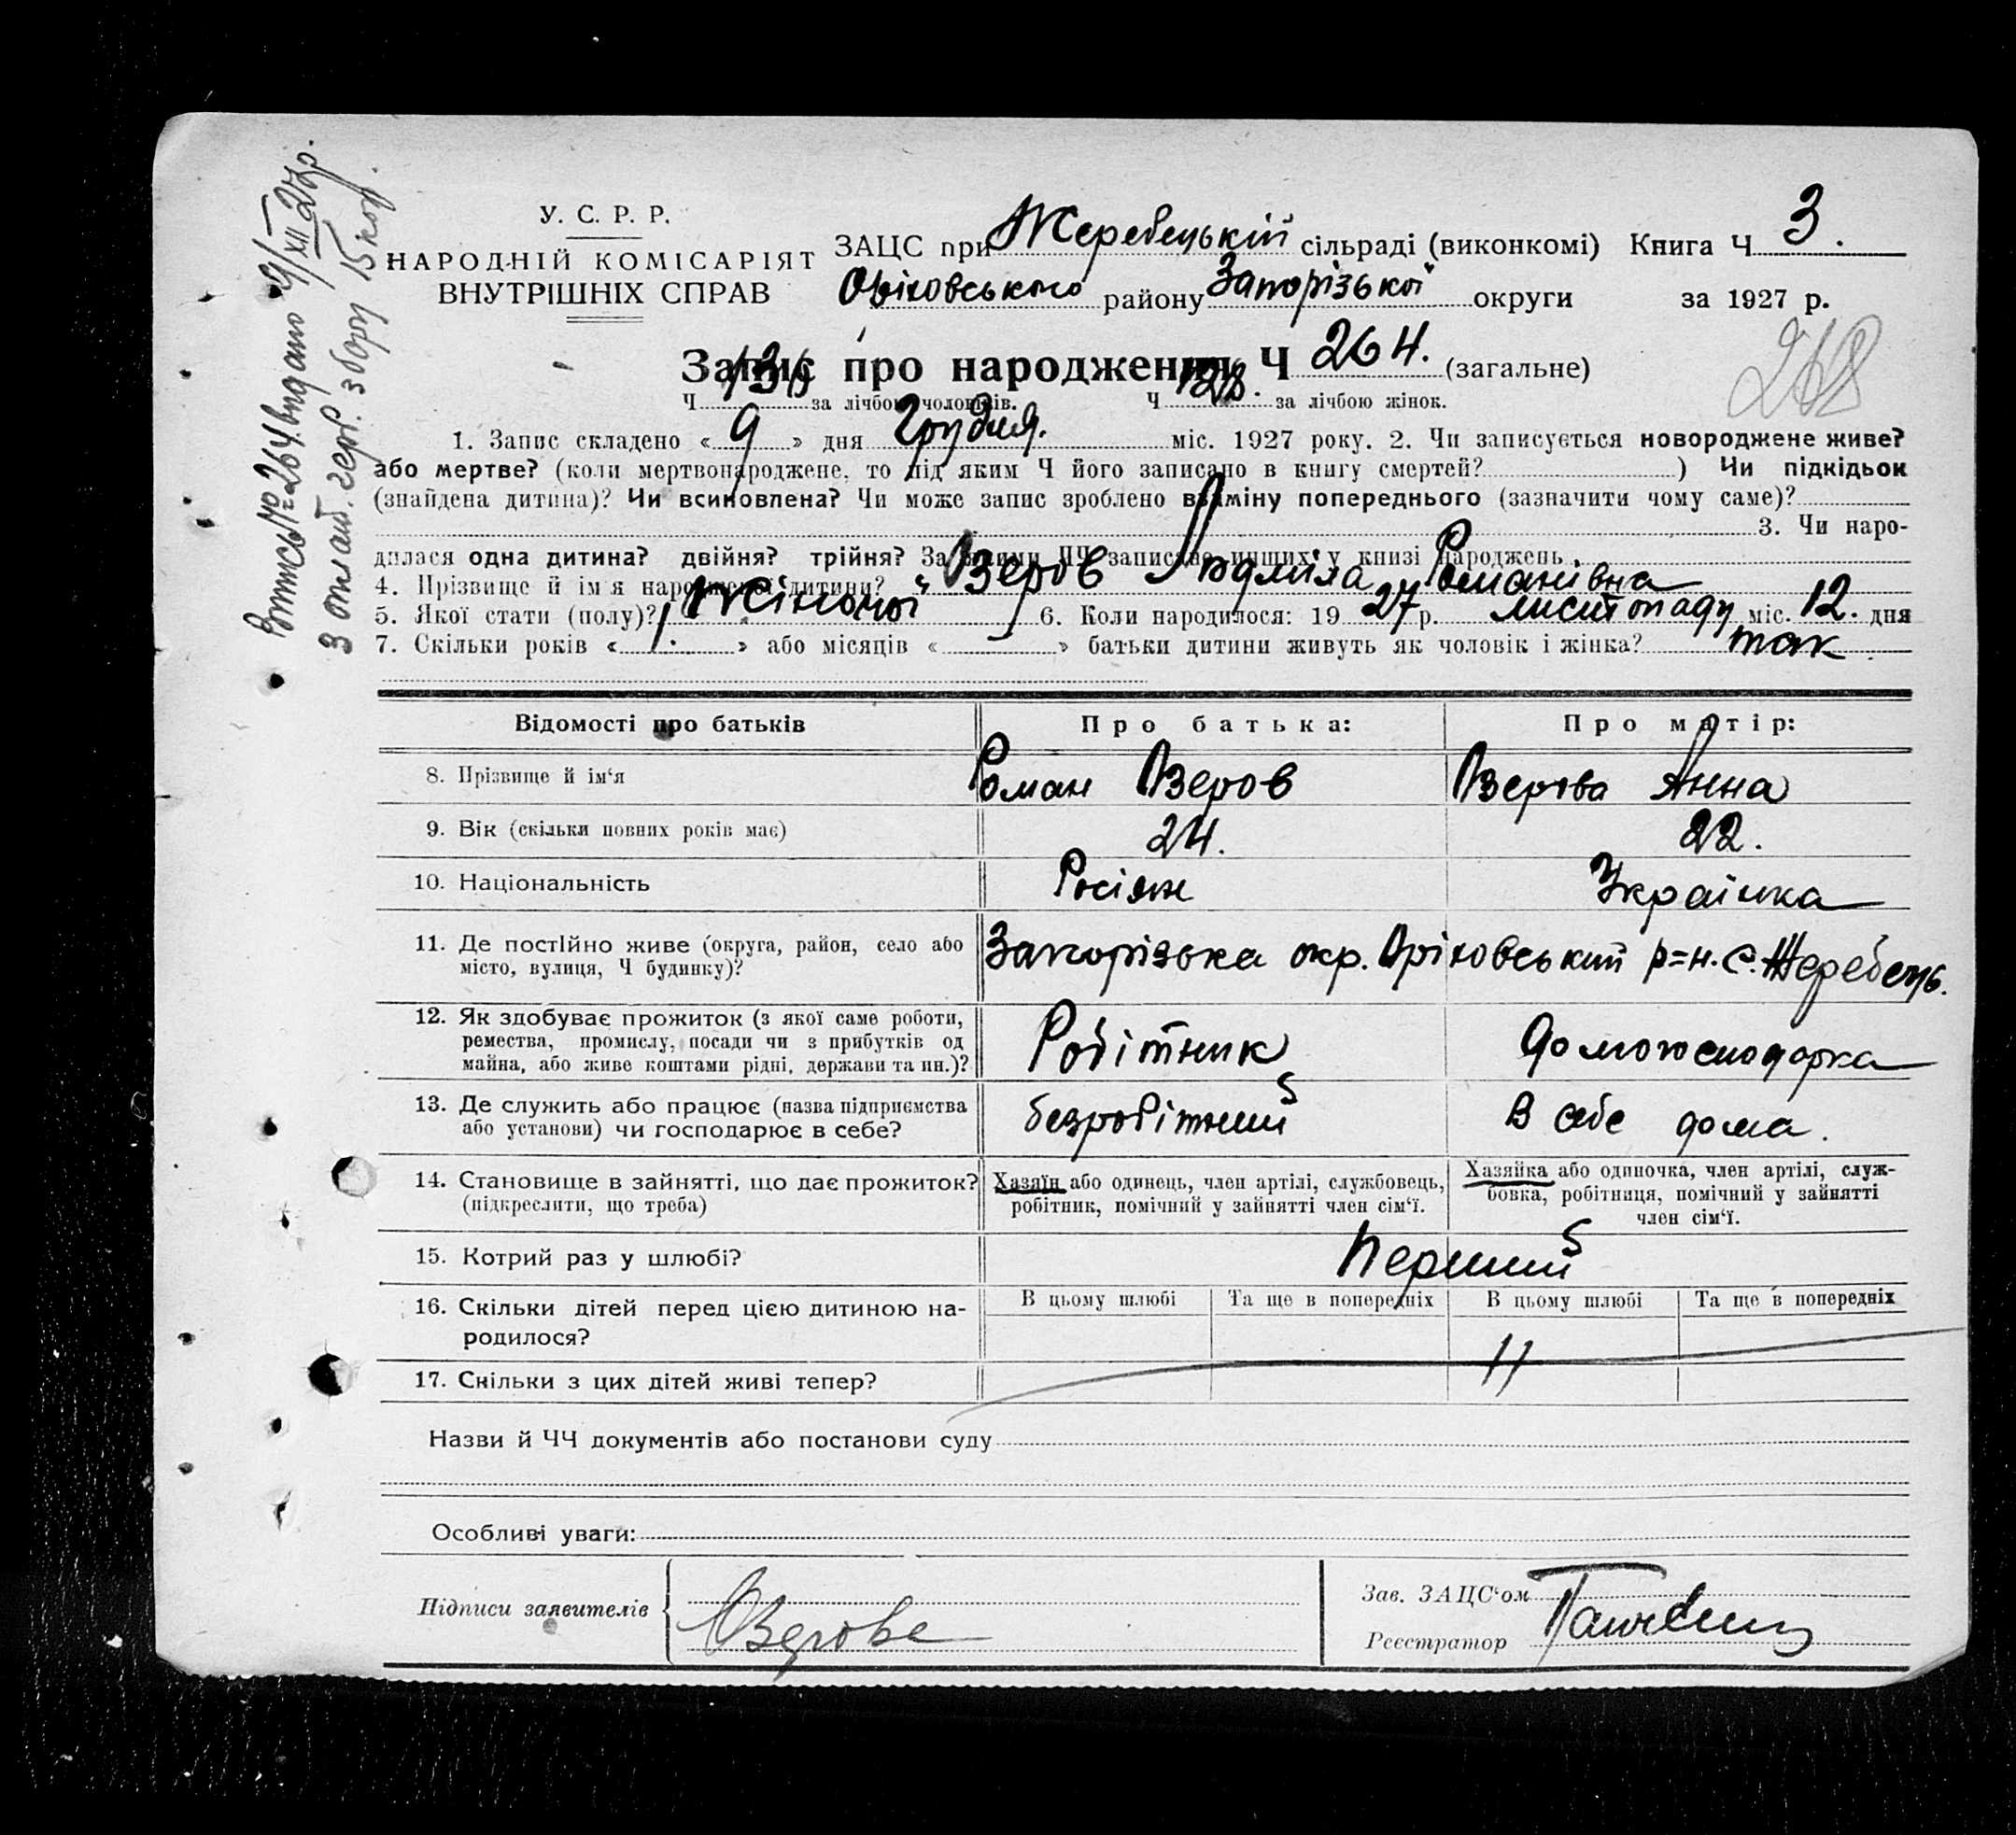 Випись № 264 видано 9/XII 27 р.
З оплат. герб. збору 15 коп.
У. С. Р. Р.
НАРОДНІЙ КОМІСАРІЯТ
ВНУТРІШНІХ СПРАВ
ЗАЦС при Жеребецькій сільраді (виконкомі) Книга Ч 3.
Оріховського району Запорізької округи за 1927 р.
Запис про народження Ч 264. (загальне)
268
Ч 136 за лічбою чоловіків. Ч 128. за лічбою жінок.
1. Запис складено « 9 » дня Грудня. міс. 1927 року. 2. Чи записується новороджене живе?
або мертве? (коли мертвонароджене, то під яким Ч його записано в книгу смертей? ) Чи підкідьок
(знайдена дитина)? Чи всиновлена? Чи може запис зроблено взаміну попереднього (зазначити чому саме)?
3. Чи наро-
дилася одна дитина? двійня? трійня? За якими ЧЧ записано инших у книзі народжень
4. Прізвище й ім'я народженої дитини? Озеров Людмила Романівна
5. Якої стати (полу)? Жіночої 6. Коли народилося: 19 27 р. листопаду міс. 12. дня
7. Скільки років « 1. » або місяців « » батьки дитини живуть як чоловік і жінка? так
Відомості про батьків Про батька: Про матір:
8. Прізвище й ім'я Роман Озеров Озерова Анна
9. Вік (скільки повних років має) 24. 22.
10. Національність Росіян Українка
11. Де постійно живе (округа, район, село або
місто, вулиця, Ч будинку)? Запорізька окр. Оріховський р=н. с. Жеребець.
12. Як здобуває прожиток (з якої саме роботи,
ремества, промислу, посади чи з прибутків од
майна, або живе коштами рідні, держави та ин.)? Робітник Домогосподарка
13. Де служить або працює (назва підприємства
або установи) чи господарює в себе? безробітний В себе дома.
14. Становище в зайнятті, що дає прожиток?
(підкреслити, що треба)
Хазяїн або одинець, член артілі, службовець,
робітник, помічний у зайнятті член сім'ї.
Хазяйка або одиночка, член артілі, служ-
бовка, робітниця, помічний у зайнятті
член сім'ї.
15. Котрий раз у шлюбі? Перший
16. Скільки дітей перед цією дитиною на-
родилося?
В цьому шлюбі Та ще в попередніх В цьому шлюбі Та ще в попередніх
17. Скільки з цих дітей живі тепер?
Назви й ЧЧ документів або постанови суду
Особливі уваги:
Підписи заявителів Озерова
Зав. ЗАЦС'ом
Реєстратор